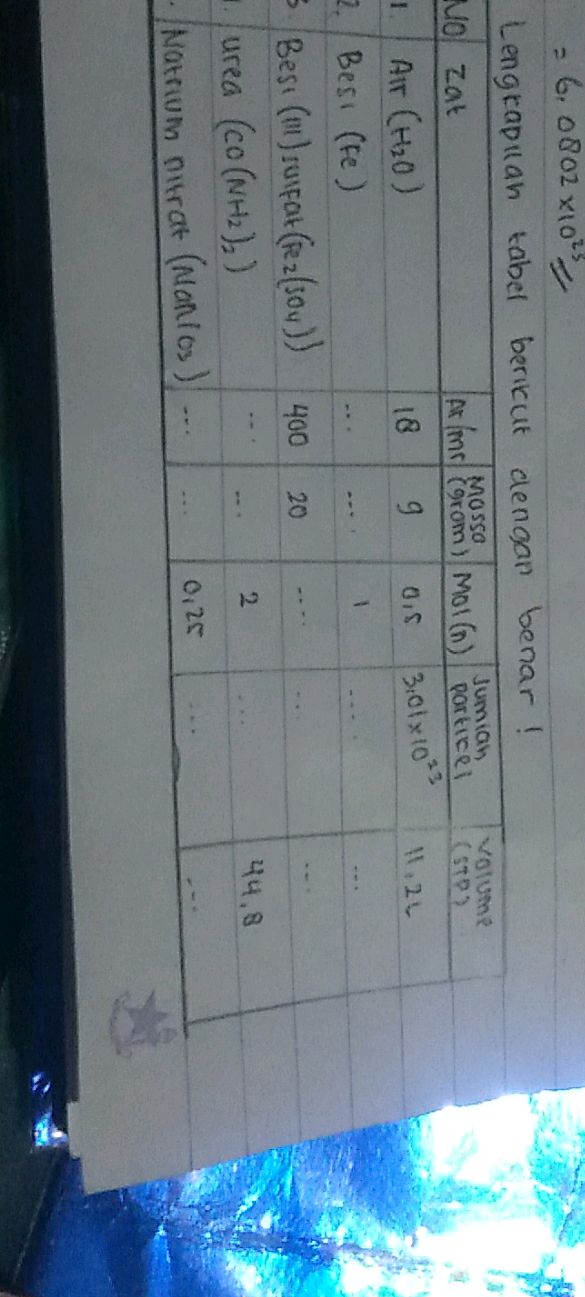 = 6,0802 x 10²³
Lengkapilah tabel berikut dengan benar!
NO Zat Ar/mr Massa (gram) Mol (n) Jumlah partikel Volume (STP)
1. Air (H2O) 18 9 0,5 3,01 x 10²³ 11,2L
2. Besi (Fe) ... .... 1 .... ...
3. Besi (III) sulfat (Fe2(SO4)) 400 20 .... ... ...
urea (CO(NH2)2) ... ... 2 ... 44,8
. Natrium nitrat ... ... 0,25 ... ...